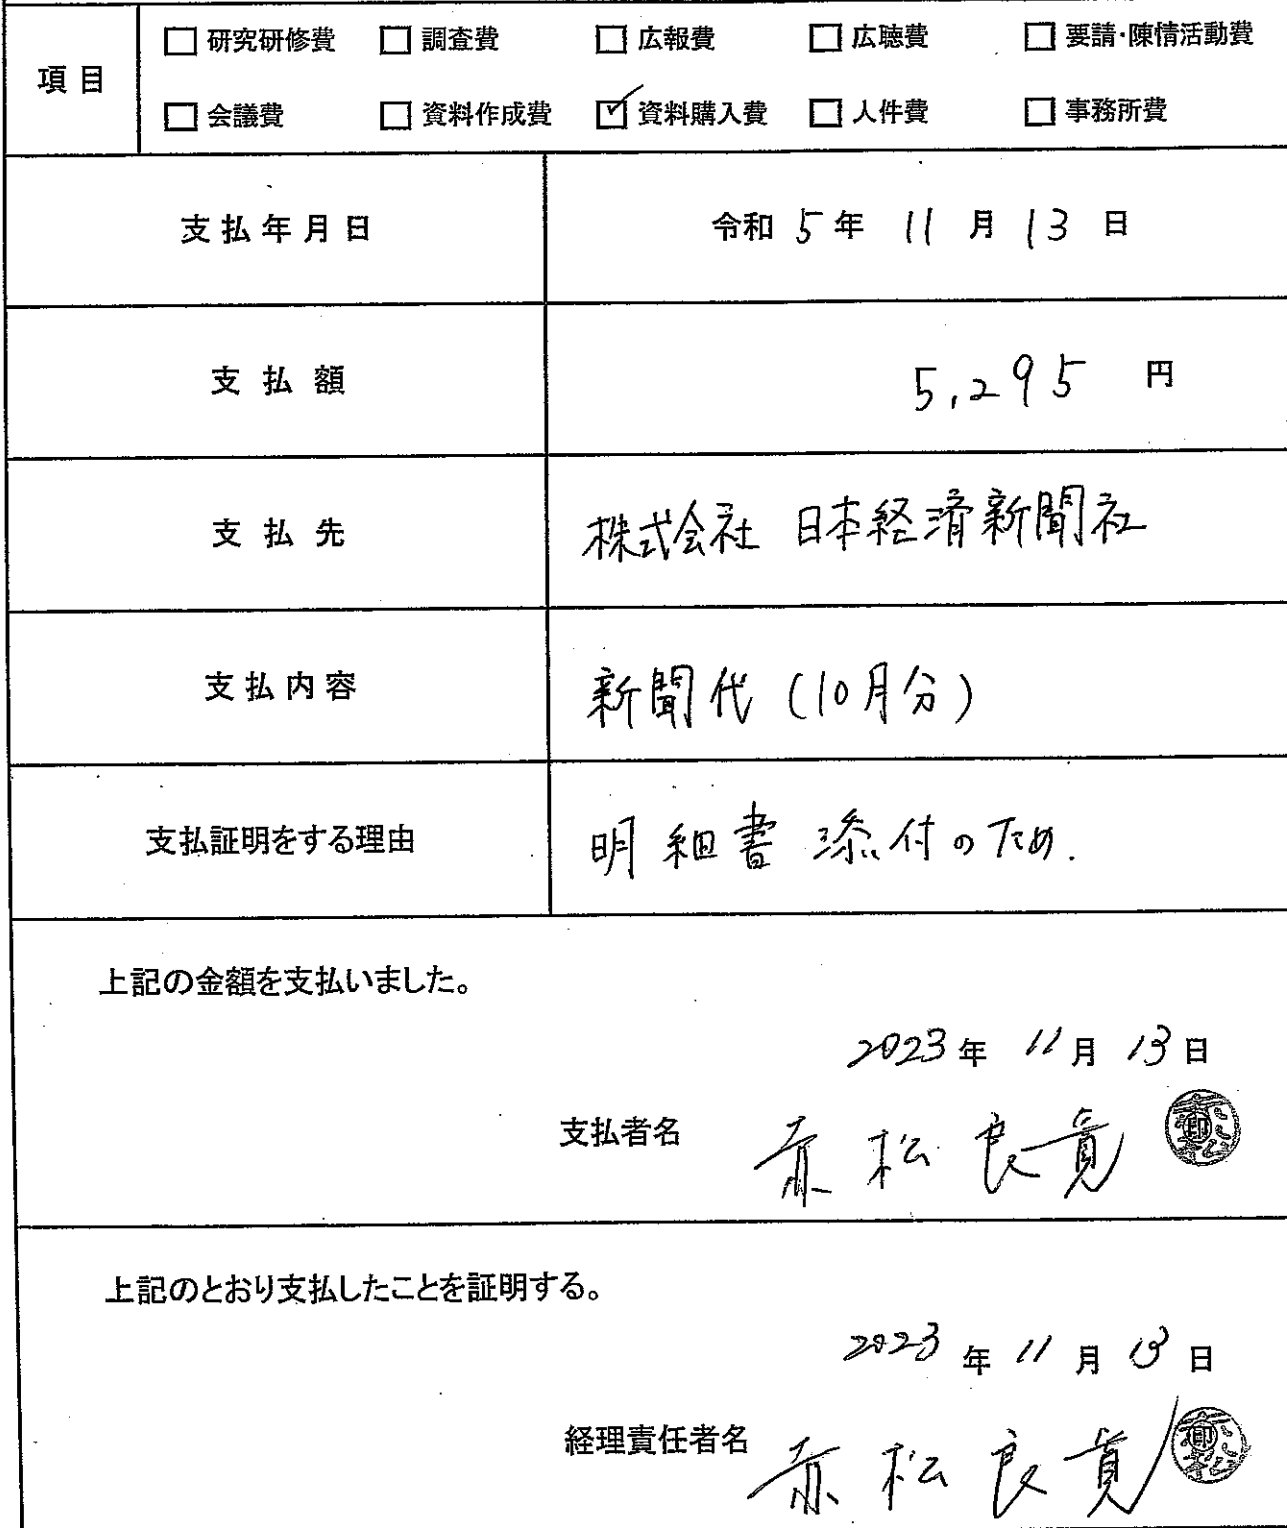 項目
□ 研究研修費 □ 調査費 □ 広報費 □ 広聴費 □ 要請・陳情活動費
□ 会議費 □ 資料作成費 ☑ 資料購入費 □ 人件費 □ 事務所費
支払年月日 令和 5 年 11 月 13 日
支払額 5,295 円
支払先 株式会社 日本経済新聞社
支払内容 新聞代(10月分)
支払証明をする理由 明細書添付のため.
上記の金額を支払いました。
2023 年 11 月 13 日
支払者名 赤松良寛 赤松印
上記のとおり支払したことを証明する。
2023 年 11 月 13 日
経理責任者名 赤松良寛 赤松印